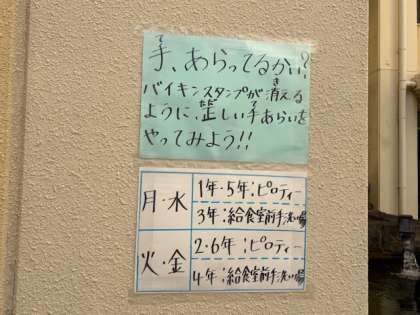 手、あらってるかい?
バイキンスタンプが消える
ように、正しい手あらいを
やってみよう!!
月・水
1年・5年:ピロティー
3年:給食室前手洗い場
火・金
2・6年:ピロティー
4年:給食室前手洗い場